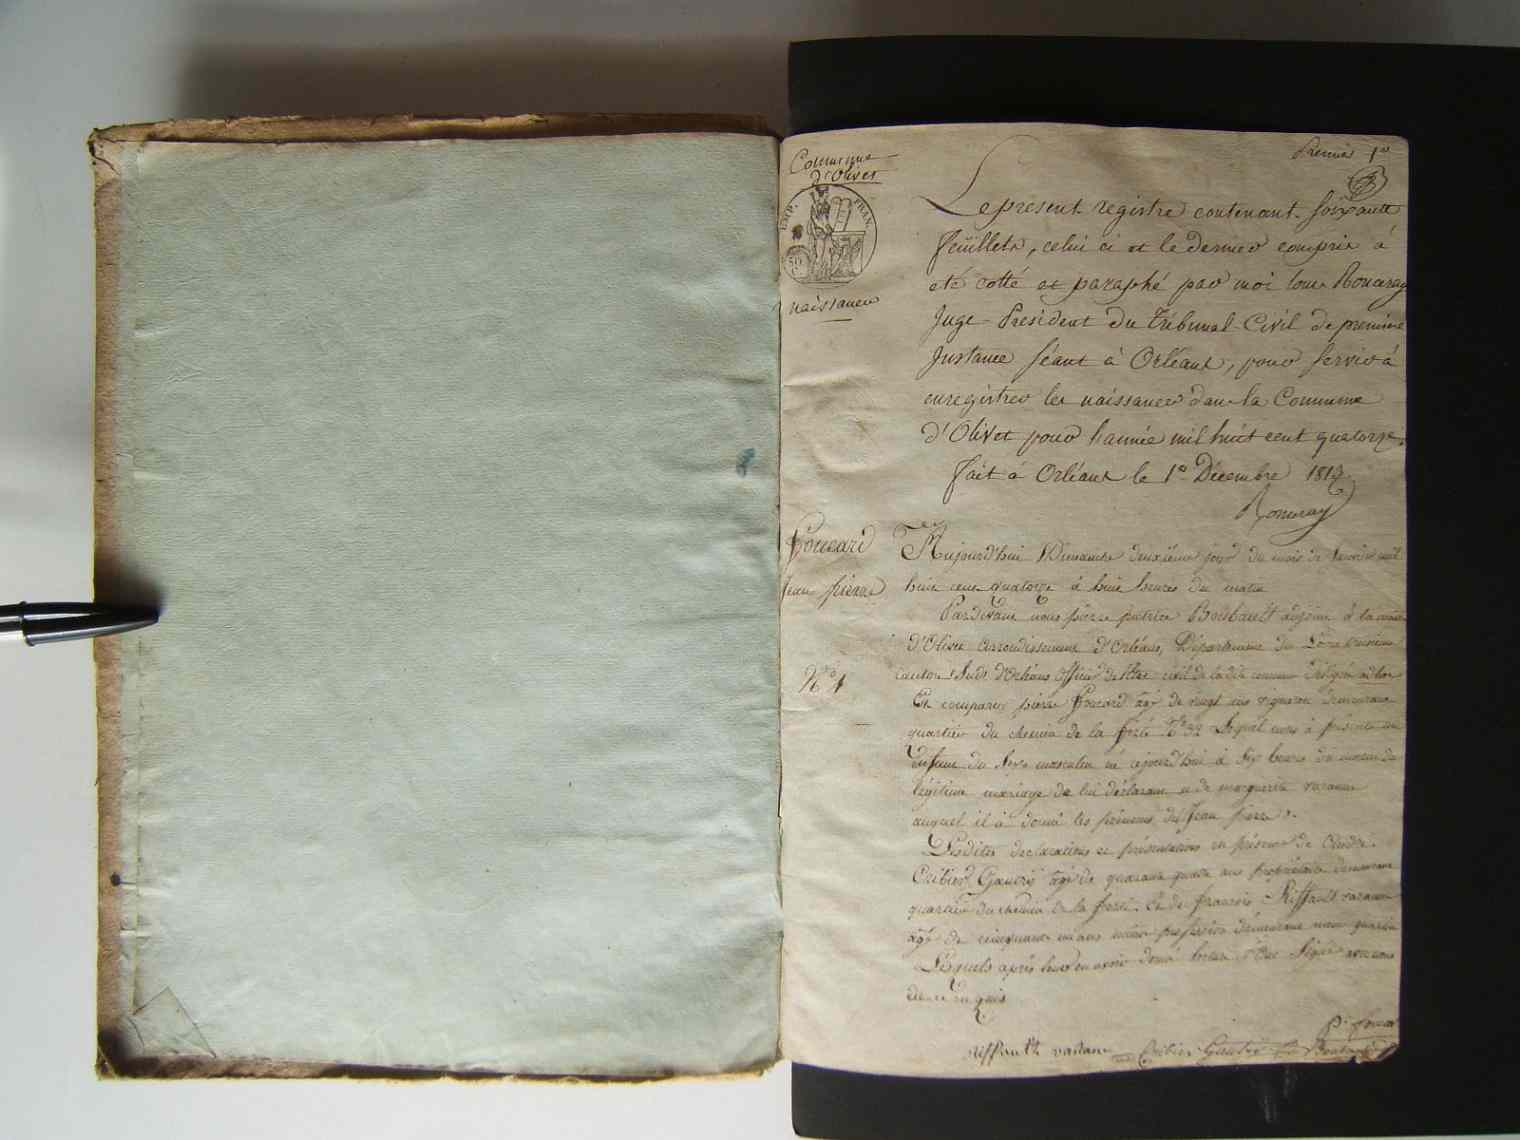 Commune
d'Olivet
EMP. FRAN.
50
C.
naissances
Premier 1er
Le present registre contenant soixante
feuillets, celui ci et le dernier compris à
eté cotté et paraphé par moi louis Ronceray
Juge President du Tribunal Civil de premiere
Instance séant à Orléans, pour servir à
enregistrer les naissances dans la Commune
d'Olivet pour l'année mil huit cent quatorze.
fait à Orléans le 1er Décembre 1813.
Ronceray
Foucard
Jean pierre
No 1
Aujourd'hui Dimanche deuxième jour du mois de Janvier mil
huit cent quatorze à huit heures du matin
Pardevant nous pierre patrice Boubault adjoint à la mairie
d'Olivet arrondissement d'Orléans, Département du Loiret troisieme
canton Sud d'Orléans Officier de l'état civil de la dite commune
Est comparu pierre Foucard agé de vingt ans vigneron demeurant
quartier du chemin de la ferté No 32 Lequel nous à présenté un
Enfant du sexe masculin né cejourd'hui à six heures du matin du
légitime mariage de lui déclarant et de marguerite
auquel il à donné les prénoms de Jean pierre.
Lesdites declarations et présentations en présence de
Cribier Gautré agé de quarante quatre ans propriétaire demeurant
quartier du chemin de la ferté. et de francois Riffault
agé de cinquante un ans même profession demeurant même quartier
Lesquels après leur en avoir donné lecture Signé avec nous
de ce requis
P. foucar
riffault Cribier Gautré